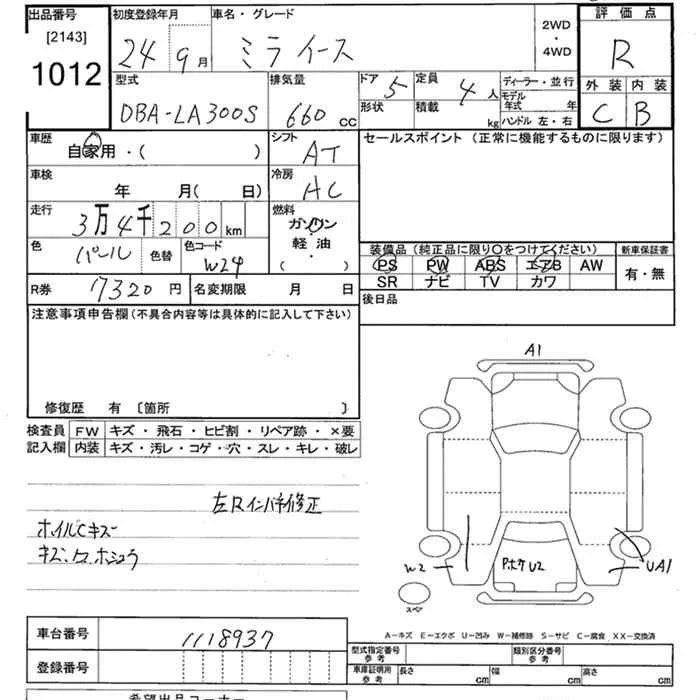 出品番号 初度登録年月 車名・グレード 2WD・4WD 評価点
[2143]
1012
24年 9月 ミライース R
型式 排気量 ドア 5 定員 4人 ディーラー・並行 外装 内装
DBA-LA300S 660cc 形状 積載 kg モデル年式 年 C B
ハンドル 左・右
車歴 自家用・( ) シフト AT セールスポイント (正常に機能するものに限ります)
車検 年 月( 日) 冷房 AC
走行 3万4千200km 燃料 ガソリン
軽油・
( )
色 パール 色替 色コード W24
装備品 (純正品に限り○をつけてください) 新車保証書
PS PW ABS エアB AW 有・無
SR ナビ TV カワ
R券 7320円 名変期限 月 日 後日品
注意事項申告欄(不具合内容等は具体的に記入して下さい)
修復歴 有 〔箇所 〕
検査員 FW キズ・飛石・ヒビ割・リペア跡・×要
記入欄 内装 キズ・汚レ・コゲ・穴・スレ・キレ・破レ
左Rインパネ修正
ホイルCキズ
A1
W2
UA1
スペア
A-キズ E-エクボ U-凹み W-補修跡 S-サビ C-腐食 XX-交換済
車台番号 1118937
型式指定番号 参考 類別区分番号 参考
登録番号 車庫証明用 参考 長さ cm 幅 cm 高さ cm
希望出品コーナー